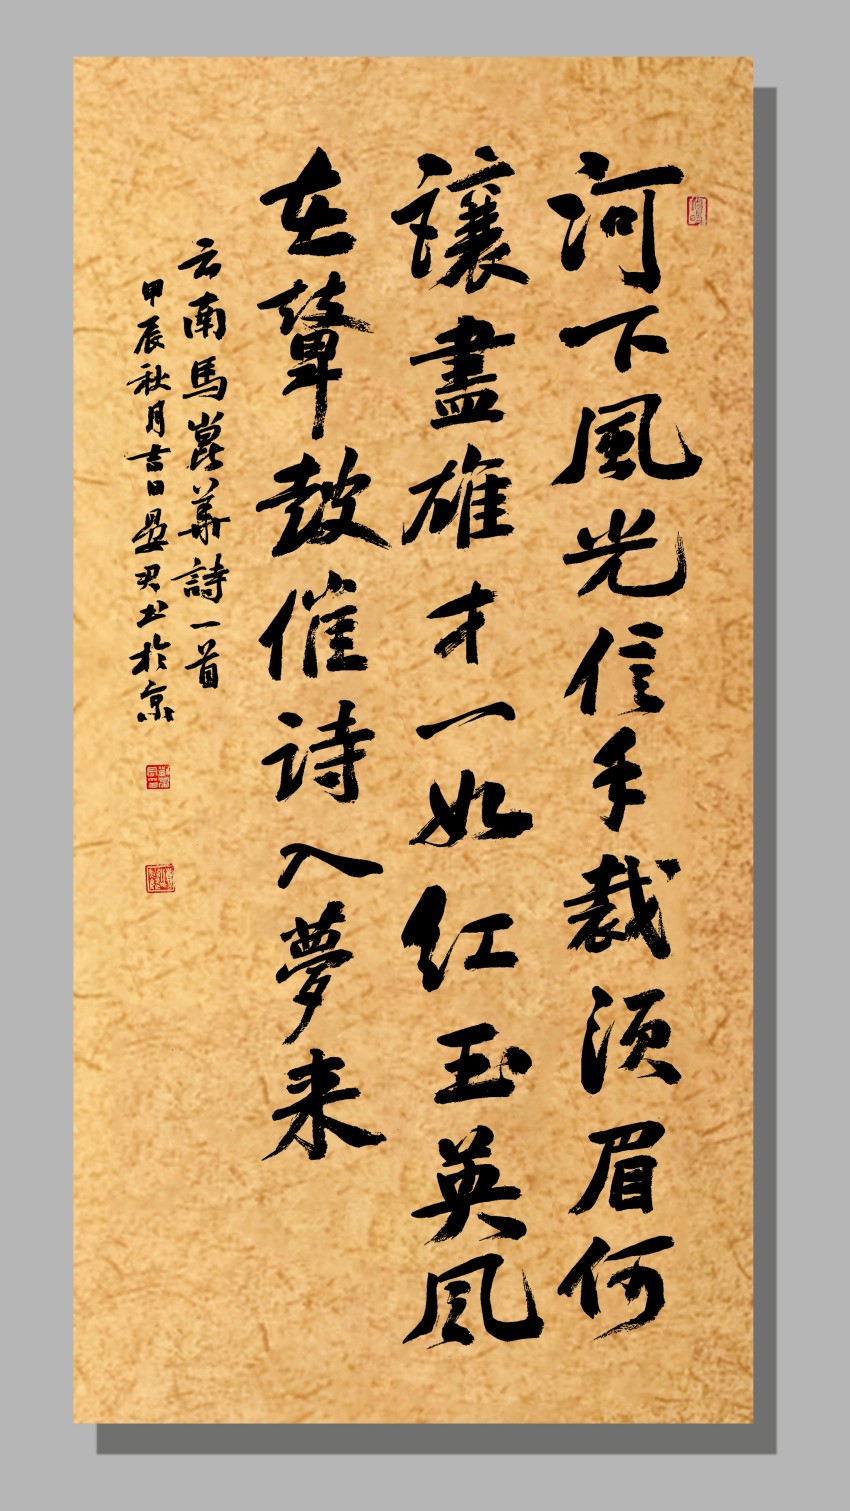 河下風光信手裁须眉何
讓盡雄才一如红玉英风
在鼙鼓催诗入夢来
云南馬崑華詩一首
甲辰秋月吉日晏书於京